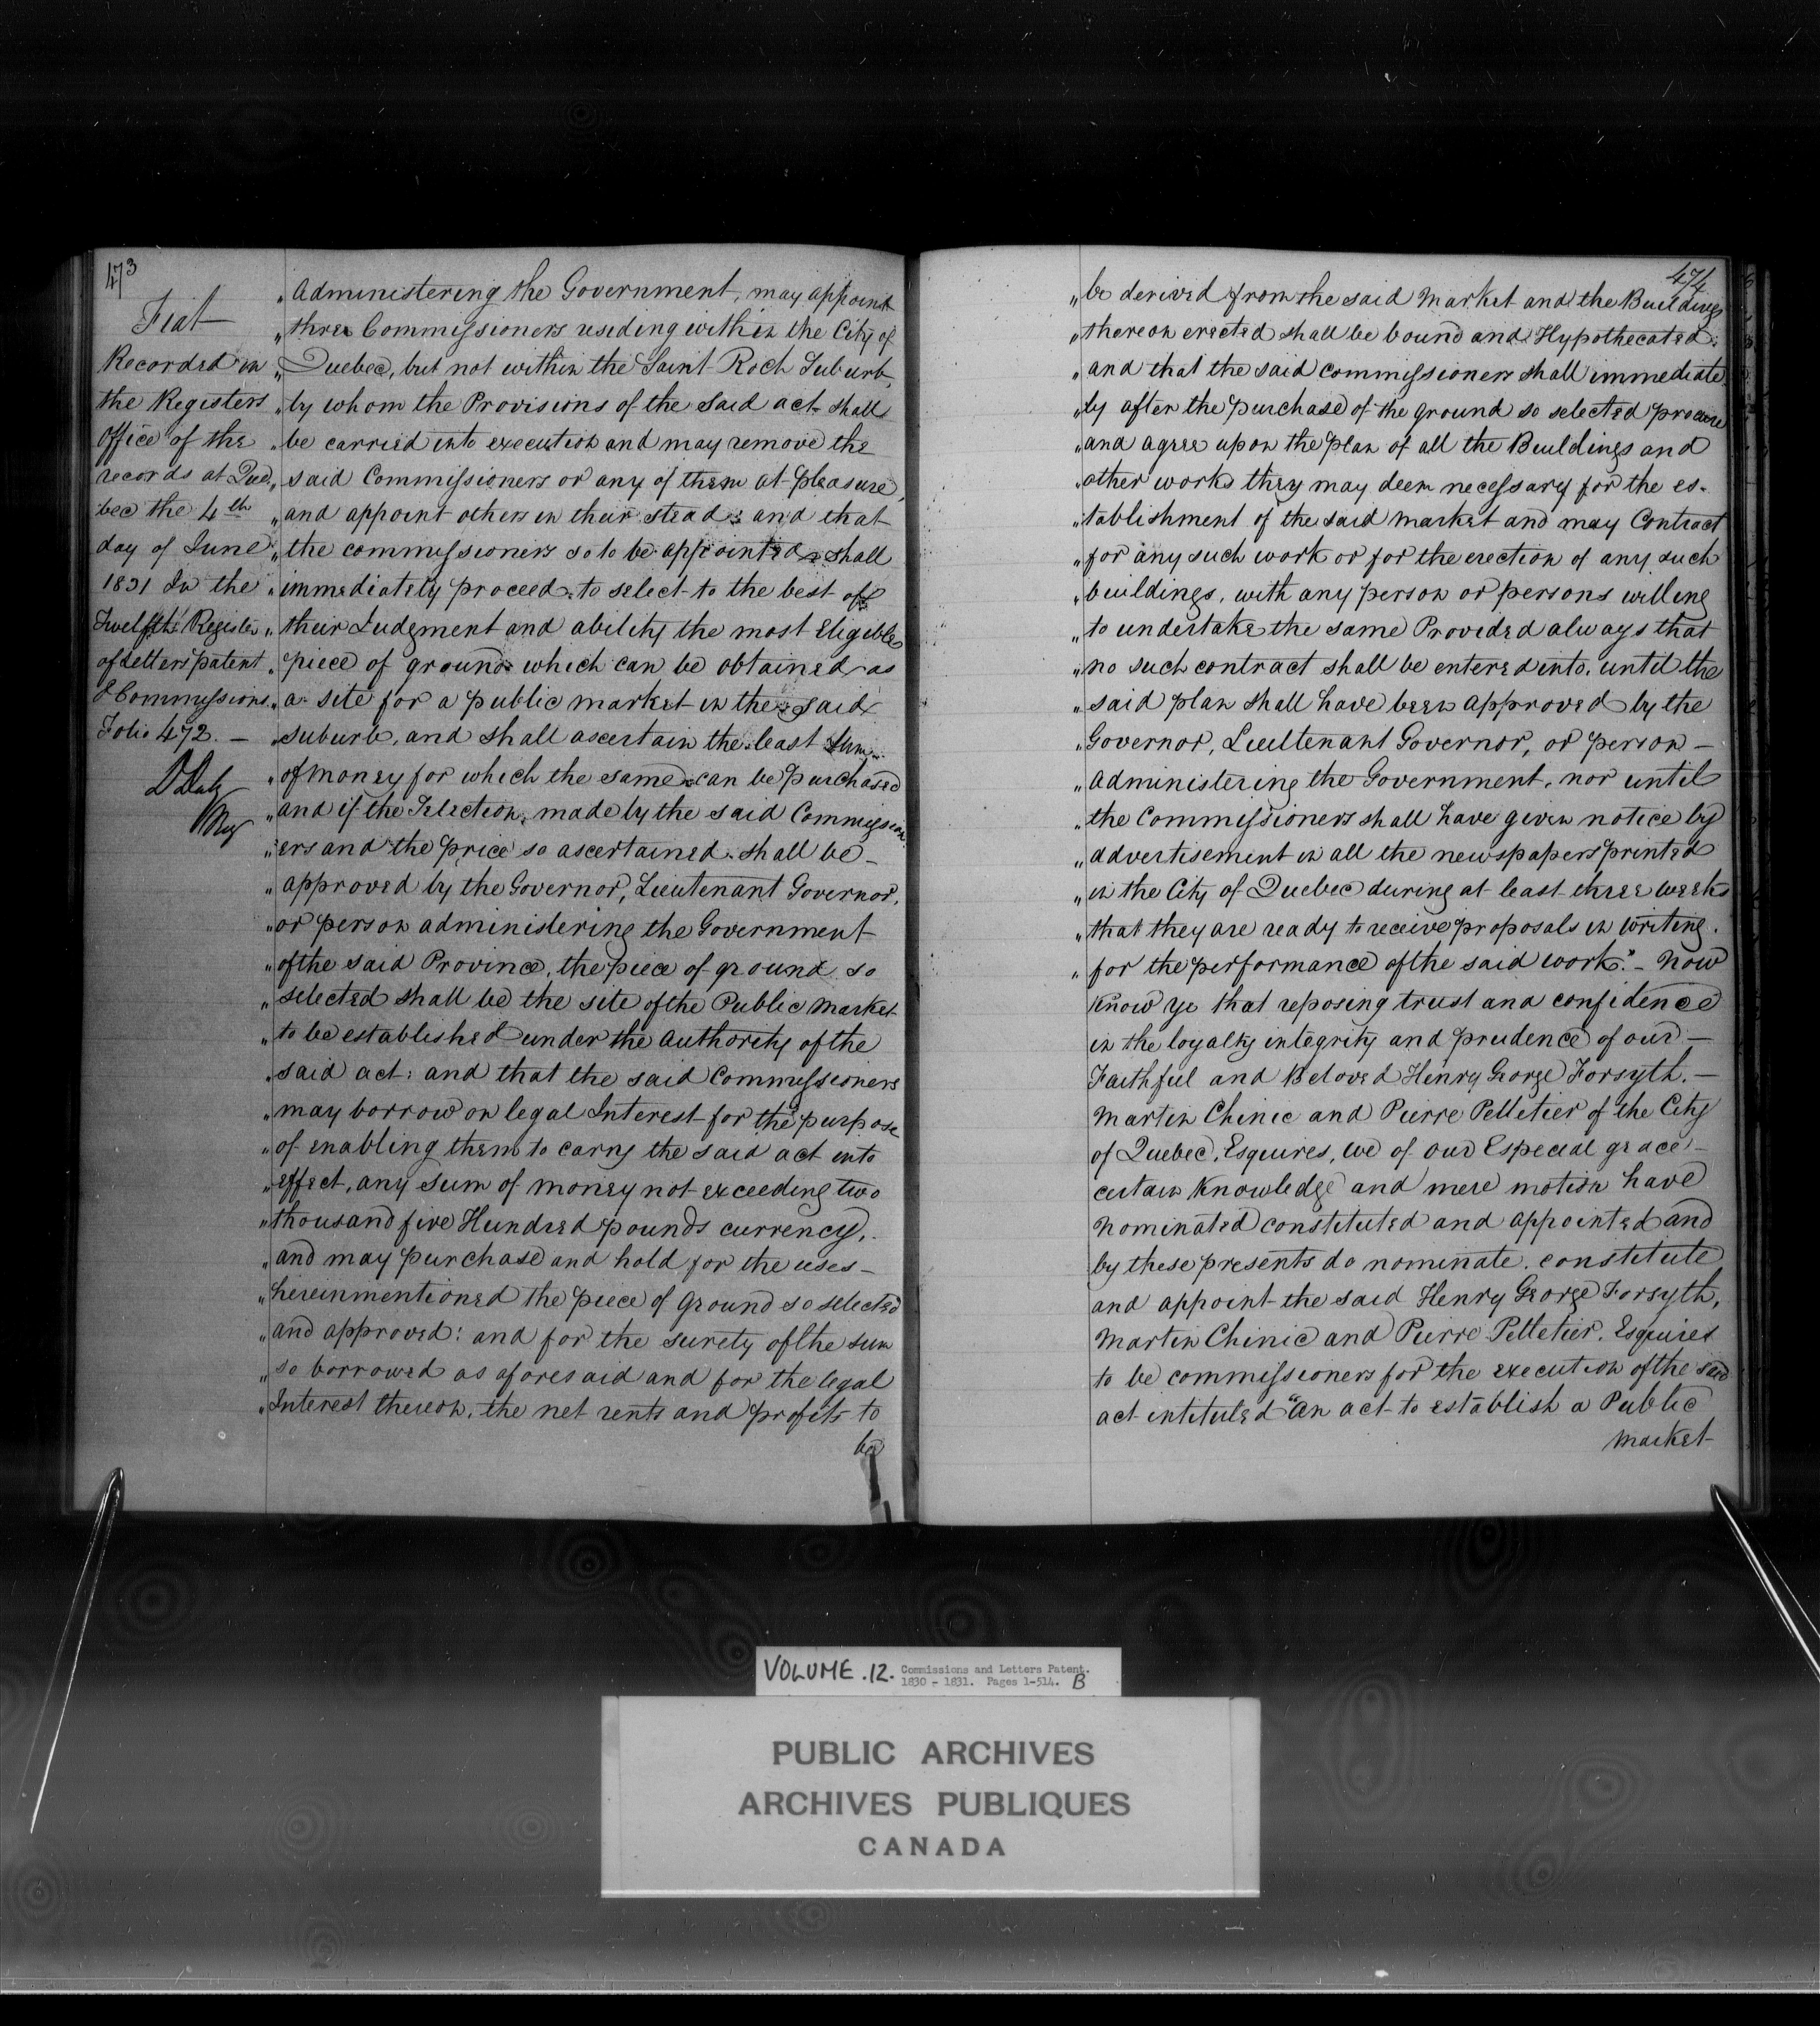 473
Fiat
Recorded in
the Registers
Office of the
records at Que„
bec the 4th
day of June
1831 In the
Twelfth Register
of letters patent
& Commissions.
Folio 472. —
DDaly
Reg
„ Administering the Government, may appoint
„ three Commissioners residing within the City of
„ Quebec, but not within the Saint Roch Suburb,
„ by whom the Provisions of the Said act shall
„ be carried into execution and may remove the
„ said Commissioners or any of them at pleasure,
„ and appoint others in their stead: and that
„ the commissioners so to be appointed shall
„ immediately proceed to select to the best of
„ their Judgment and ability the most Eligible
„ piece of ground which can be obtained as
„ a site for a public market in the said
„ suburb, and shall ascertain the least sum
„ of money for which the same can be purchased
„ and if the Selection, made by the said Commission
„ ers and the price so ascertained shall be —
„ approved by the Governor, Lieutenant Governor,
„ or person administering the Government
„ of the said Province, the piece of ground so
„ selected shall be the site of the Public Market
„ to be established under the Authority of the
„ said act: and that the said Commissioners
„ may borrow on legal Interest for the purpose
„ of enabling them to carry the said act into
„ effect, any sum of money not exceeding two
„ thousand five Hundred pounds currency,
„ and may purchase and hold for the uses —
„ hereinmentioned the piece of Ground so selected
„ and approved: and for the surety of the sum
„ so borrowed as aforesaid and for the legal
„ Interest thereon, the net rents and profits to
be
474
„ be derived from the said Market and the Buildings
„ thereon erected shall be bound and Hypothecated:
„ and that the said commissioners shall immediate
„ ly after the purchase of the ground so selected procure
„ and agree upon the plan of all the Buildings and
„ other works they may deem necessary for the es-
„ tablishment of the said market and may Contract
„ for any such work or for the erection of any such
„ buildings, with any person or persons willing
„ to undertake the same Provided always that
„ no such contract shall be entered into, until the
„ said plan shall have been approved by the
„ Governor, Lieutenant Governor, or person —
„ Administering the Government, nor until
„ the Commissioners shall have given notice by
„ advertisement in all the newspapers printed
„ in the City of Quebec during at least three weeks
„ that they are ready to receive proposals in writing.
„ for the performance of the said work." — Now
Know ye that reposing trust and confidence
in the loyalty integrity and prudence of our —
Faithful and Beloved Henry George Forsyth. —
Martin Chinic and Pierre Pelletier of the City
of Quebec, Esquires, we of our Especial grace —
certain Knowledge and mere motion have
nominated constituted and appointed and
by these presents do nominate, constitute
and appoint the said Henry George Forsyth,
Martin Chinic and Pierre Pelletier, Esquires
to be commissioners for the execution of the said
act intituled "An act to establish a Public
Market
VOLUME .12. Commissions and Letters Patent.
1830 - 1831. Pages 1-514. B
PUBLIC ARCHIVES
ARCHIVES PUBLIQUES
CANADA